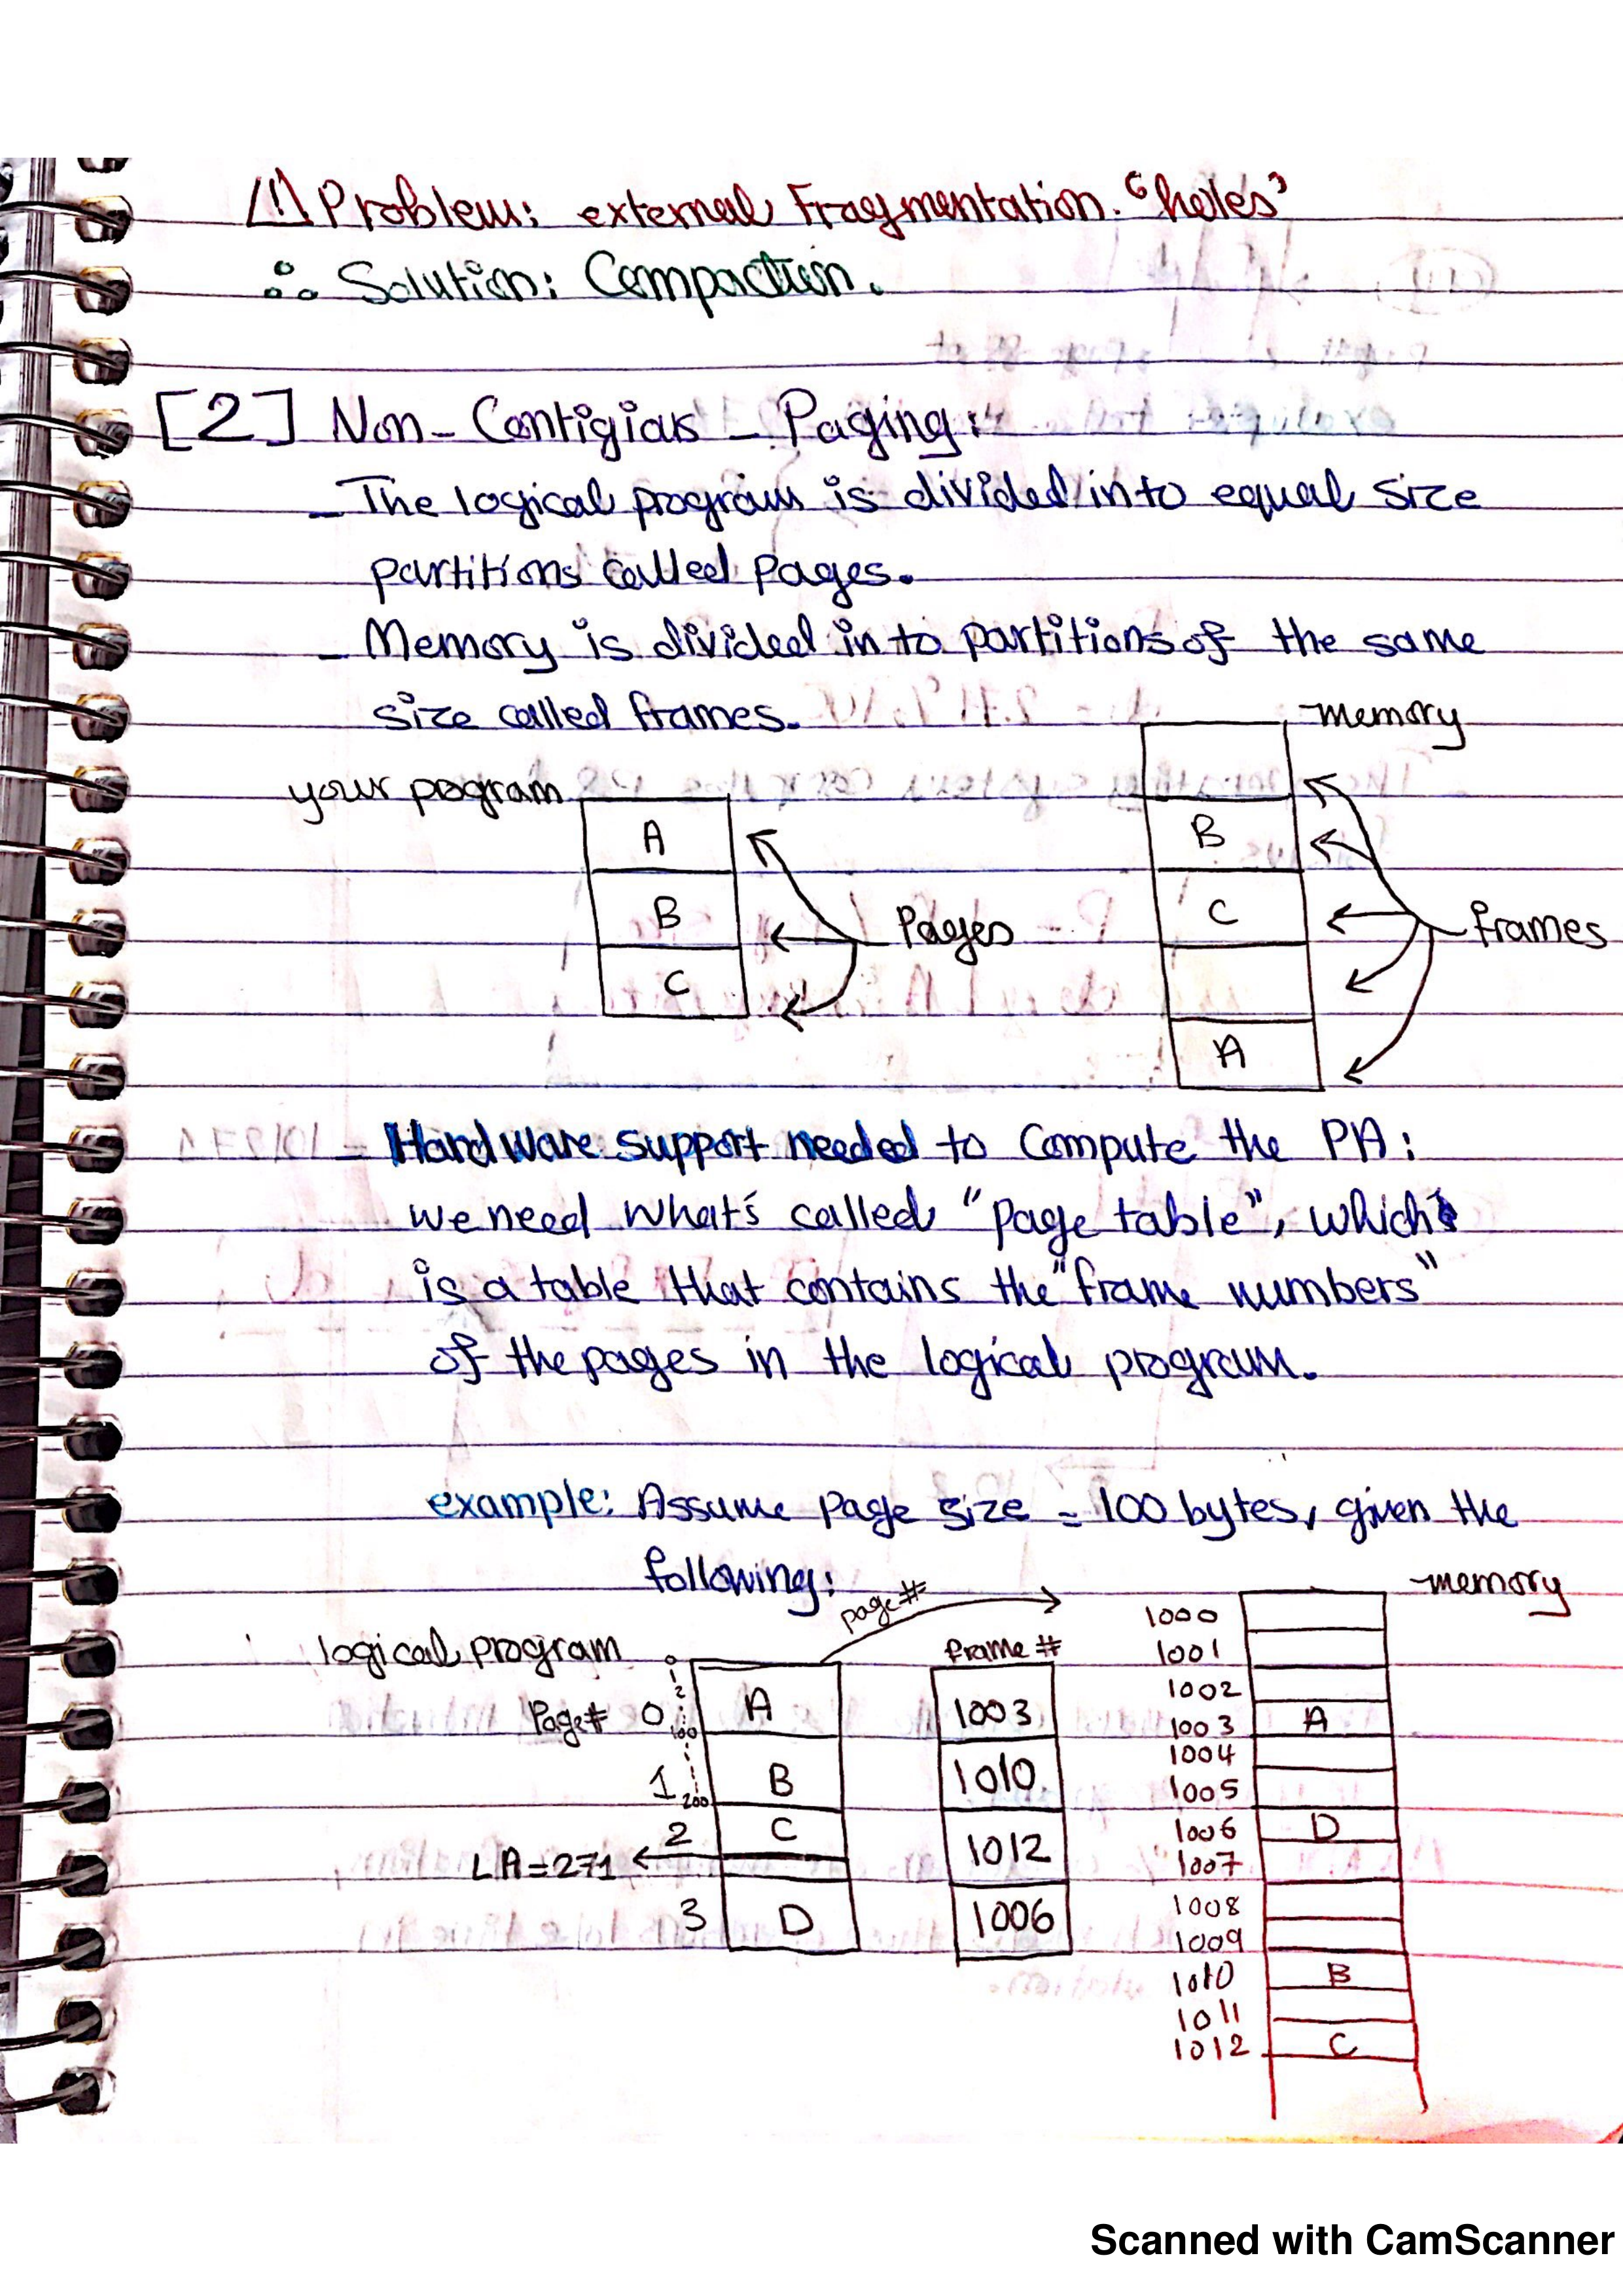 /!\ Problem: external Fragmentation. "holes"
∴ Solution: Compaction.
[2] Non-Contigias - Paging:
- The logical program is divided into equal size
partitions called pages.
- Memory is divided into partitions of the same
size called frames.
memory
your program
A
B
C
Pages
B
C
A
frames
- Hardware support needed to compute the PA:
we need what's called "page table", which
is a table that contains the "frame numbers"
of the pages in the logical program.
example: Assume page size = 100 bytes, given the
following:
page#
memory
logical program
frame #
Page# 0
1
2
3
0
2
100
200
A
B
C
D
LA=271
1003
1010
1012
1006
1000
1001
1002
1003 A
1004
1005
1006 D
1007
1008
1009
1010 B
1011
1012 C
Scanned with CamScanner